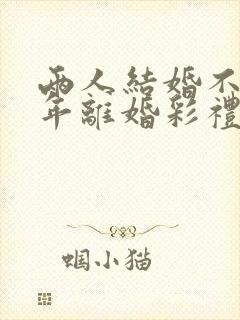 兩人結婚不
年離婚彩禮
蝈小猫